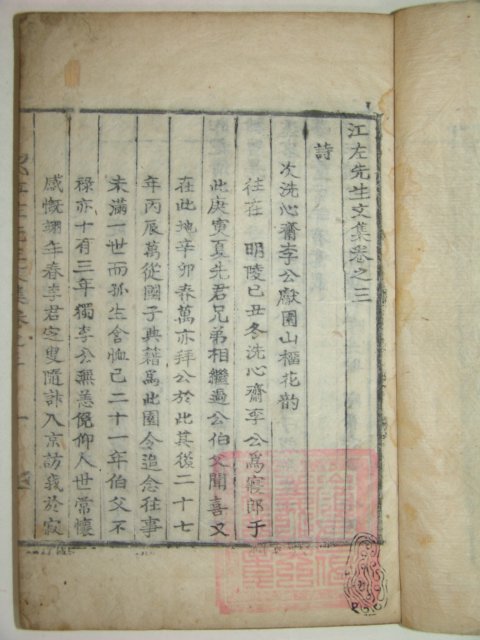 江左先生文集卷之三
詩
次洗心齋李公獻園山榴花韵
往在 明陵己丑冬洗心齋李公爲寢郎于
此庚寅夏先君兄弟相繼過公伯父聞喜又
在此地辛卯春萬亦拜公於此其後二十七
年丙辰萬從國子典籍爲此園令追念往事
未滿一世而孤生含恤已二十一年伯父不
祿亦十有三年獨李公無恙俛仰人世常懷
感慨翊年春李君定叟隨計入京訪我於寂